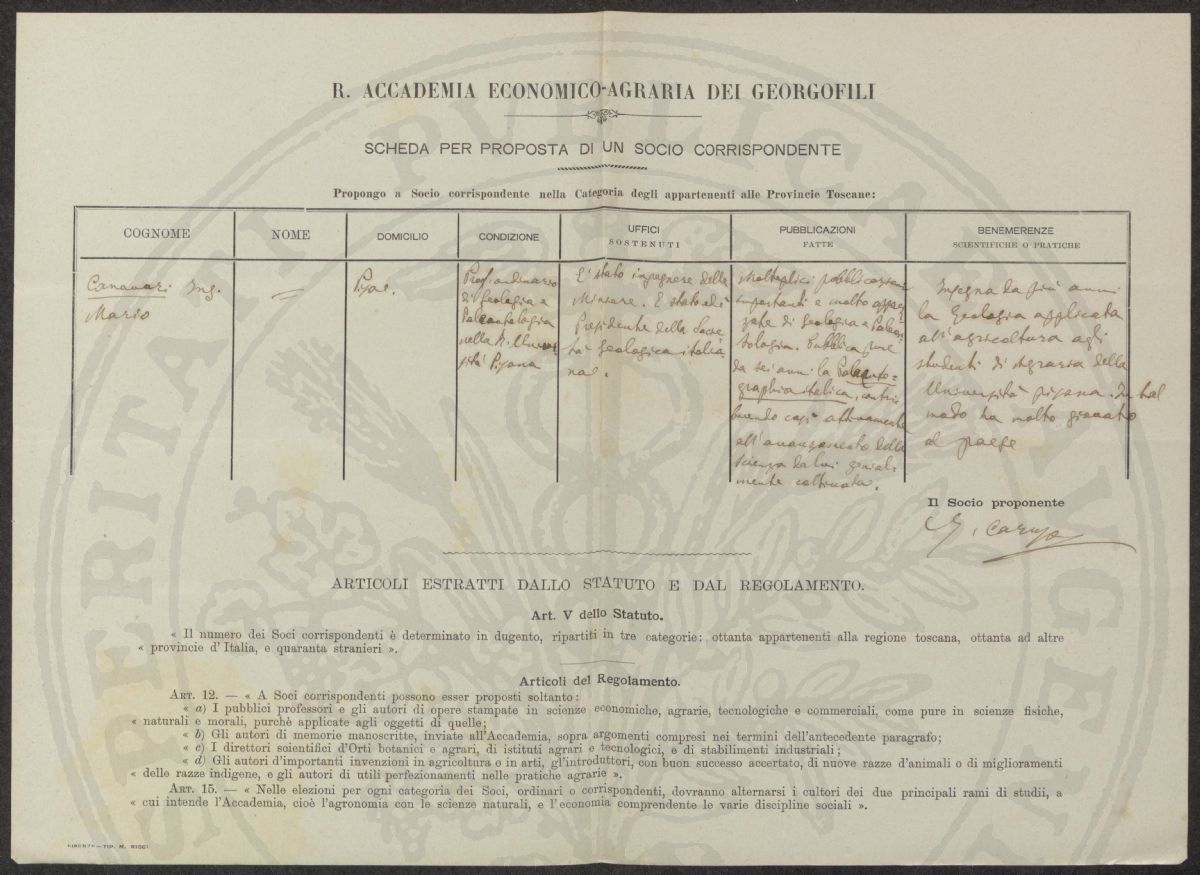 R. ACCADEMIA ECONOMICO-AGRARIA DEI GEORGOFILI
SCHEDA PER PROPOSTA DI UN SOCIO CORRISPONDENTE
Propongo a Socio corrispondente nella Categoria degli appartenenti alle Provincie Toscane:
COGNOME
NOME
DOMICILIO
CONDIZIONE
UFFICI
SOSTENUTI
PUBBLICAZIONI
FATTE
BENEMERENZE
SCIENTIFICHE O PRATICHE
Canavari Ing.
Mario
—
Pisa.
Prof. ordinario
di Geologia e
Paleontologia
nella R. Univer
sità Pisana
E' stato ingegnere delle
Miniere. E stato
Presidente della Socie
tà geologica italia
na.
Molteplici pubblicazioni
importanti e molto apprez
zate di geologia e Paleon
tologia. Pubblica pure
da sei anni la Palaeonto=
graphia italica, contri
buendo così attivamente
all'avanzamento della
scienza da lui genial
mente coltivata.
Insegna da più anni
la Geologia applicata
all'agricoltura agli
studenti di Agraria della
Università pisana. In tal
modo ha molto giovato
al paese
Il Socio proponente
G. Caruso
ARTICOLI ESTRATTI DALLO STATUTO E DAL REGOLAMENTO.
Art. V dello Statuto.
« Il numero dei Soci corrispondenti è determinato in dugento, ripartiti in tre categorie: ottanta appartenenti alla regione toscana, ottanta ad altre
« provincie d' Italia, e quaranta stranieri ».
Articoli del Regolamento.
ART. 12. — « A Soci corrispondenti possono esser proposti soltanto:
« a) I pubblici professori e gli autori di opere stampate in scienze economiche, agrarie, tecnologiche e commerciali, come pure in scienze fisiche,
« naturali e morali, purchè applicate agli oggetti di quelle;
« b) Gli autori di memorie manoscritte, inviate all'Accademia, sopra argomenti compresi nei termini dell'antecedente paragrafo;
« c) I direttori scientifici d'Orti botanici e agrari, di istituti agrari e tecnologici, e di stabilimenti industriali;
« d) Gli autori d'importanti invenzioni in agricoltura o in arti, gl'introduttori, con buon successo accertato, di nuove razze d'animali o di miglioramenti
« delle razze indigene, e gli autori di utili perfezionamenti nelle pratiche agrarie ».
ART. 15. — « Nelle elezioni per ogni categoria dei Soci, ordinari o corrispondenti, dovranno alternarsi i cultori dei due principali rami di studii, a
« cui intende l'Accademia, cioè l'agronomia con le scienze naturali, e l'economia comprendente le varie discipline sociali ».
FIRENZE — TIP. M. RICCI